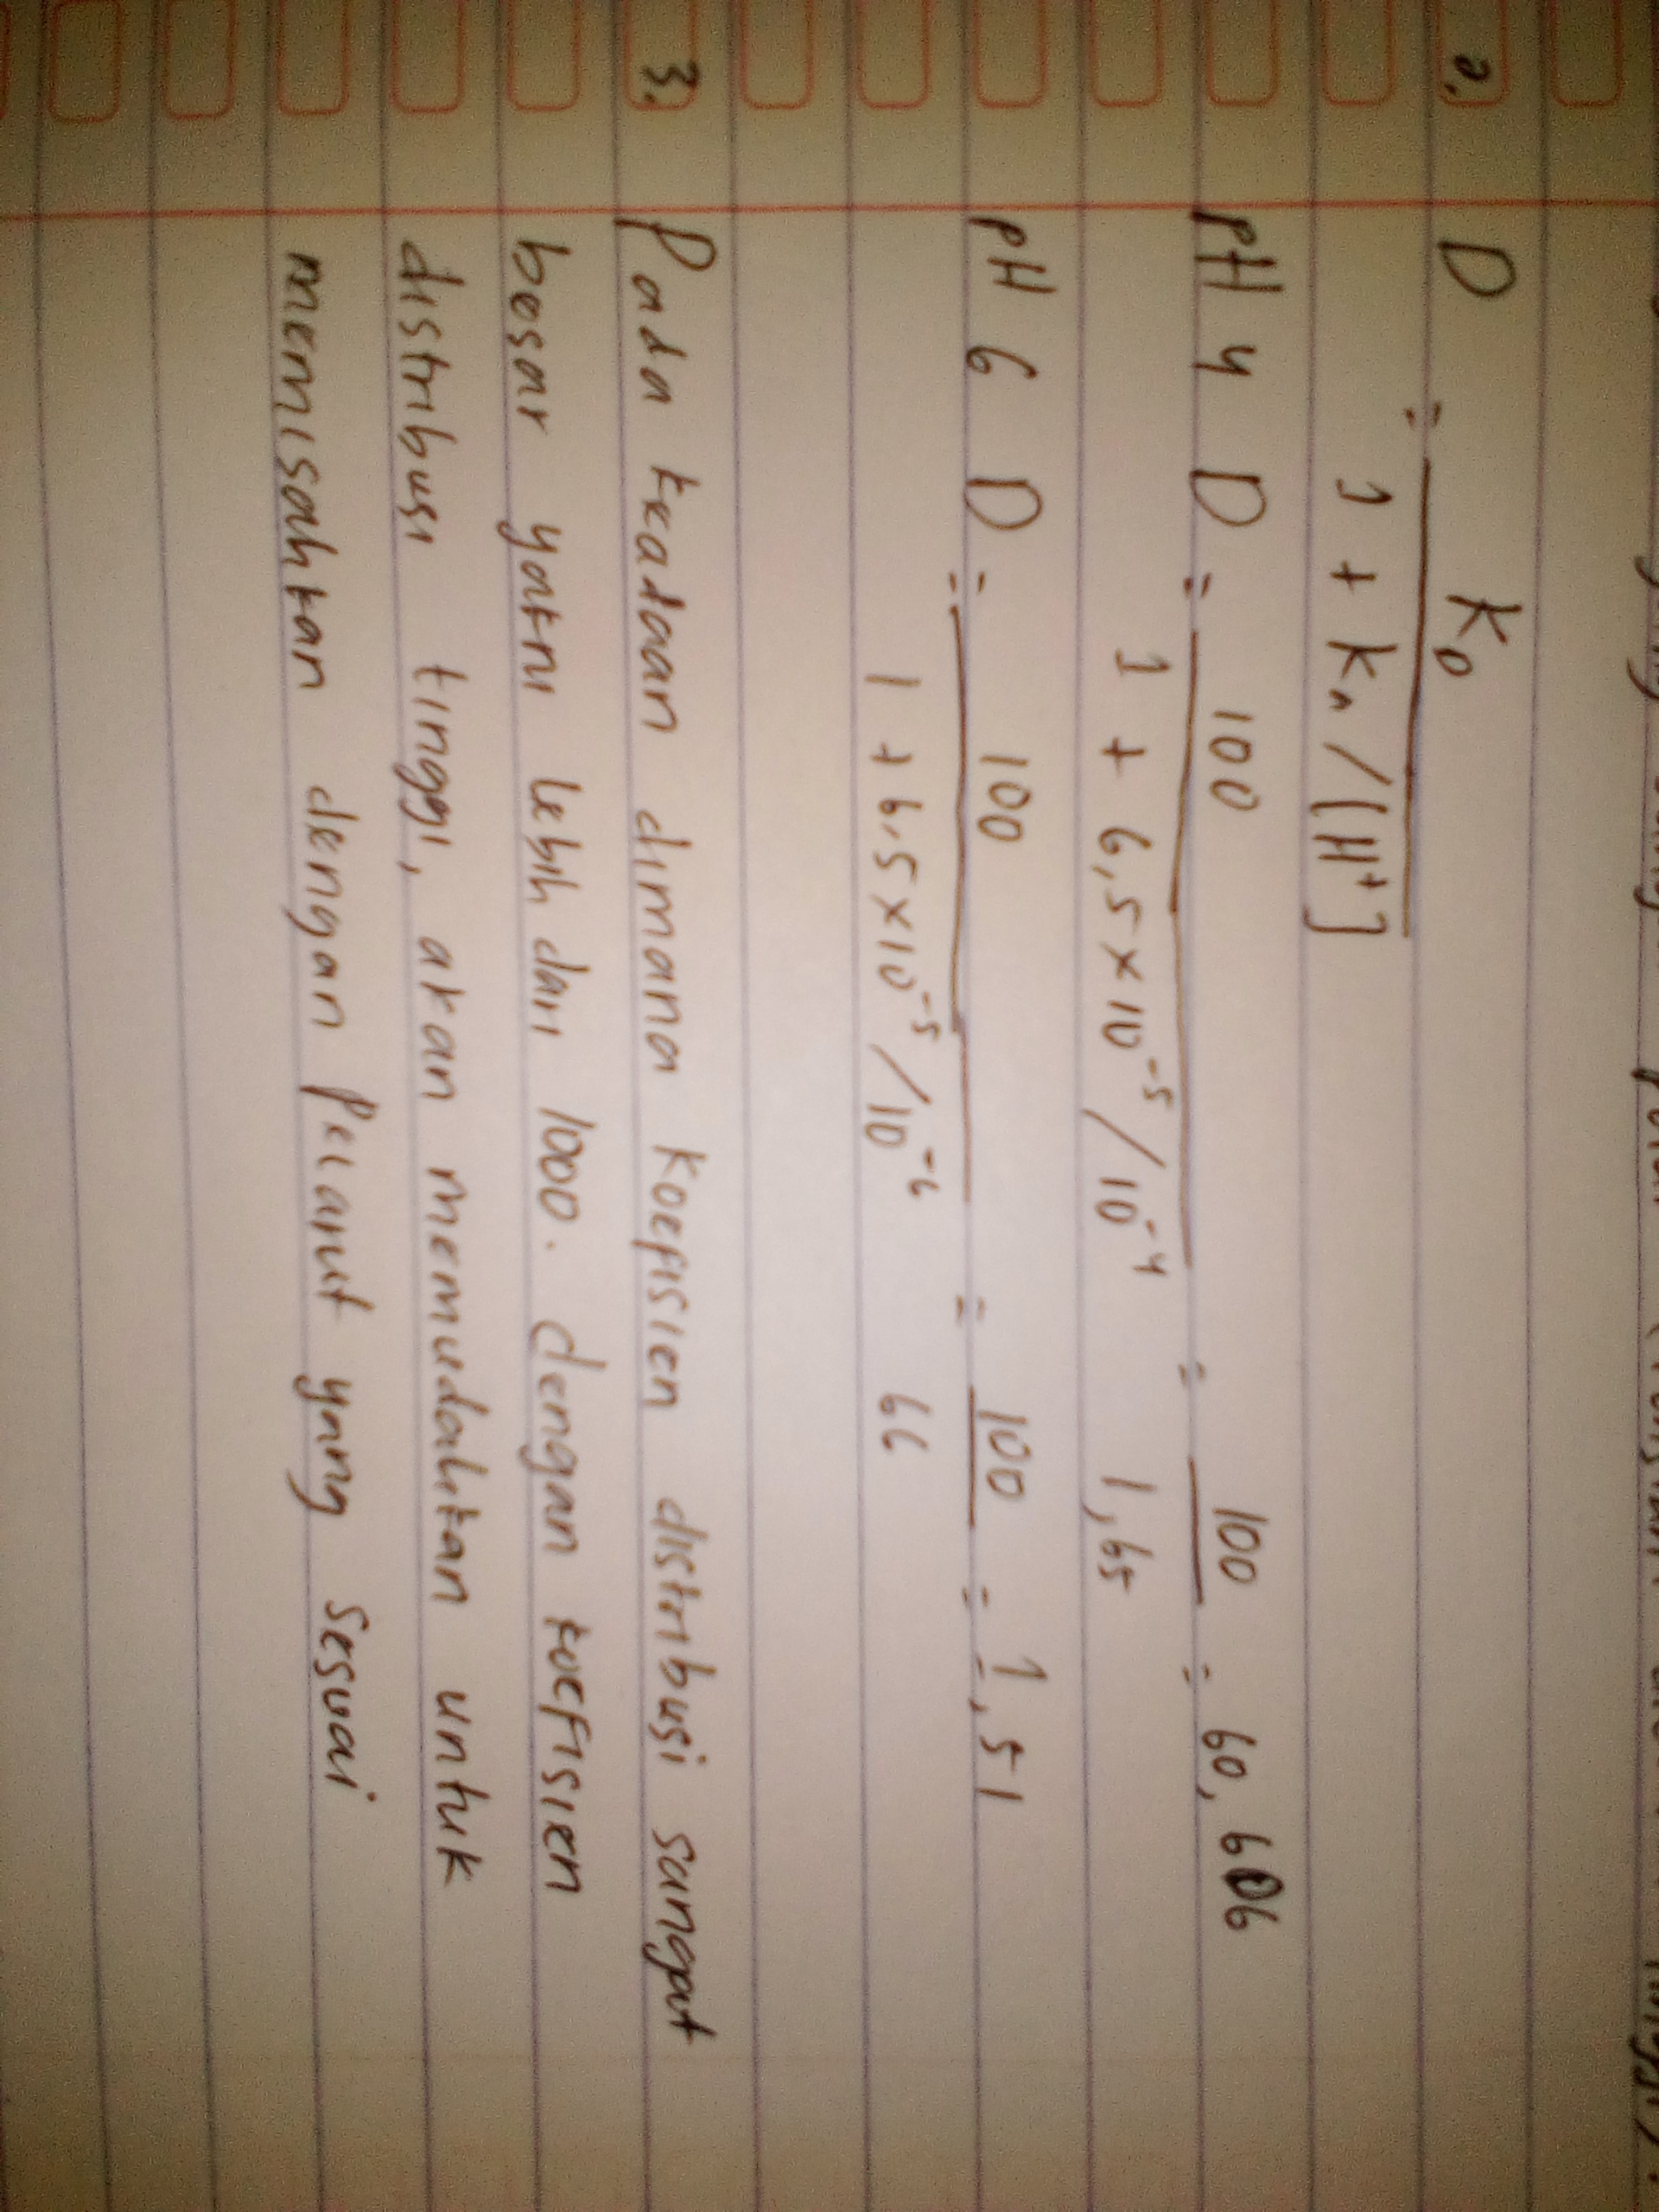 2. D = K_D
1 + Ka/[H⁺]
pH 4 D = 100 = 100 = 60,606
1 + 6,5 × 10⁻⁵ / 10⁻⁴ 1,65
pH 6 D = 100 = 100 = 1,51
1 + 6,5 × 10⁻⁵ / 10⁻⁶ 66
3. Pada keadaan dimana koefisien distribusi sangat
besar yakni lebih dari 1000. dengan koefisien
distribusi tinggi, akan memudahkan untuk
memisahkan dengan pelarut yang sesuai